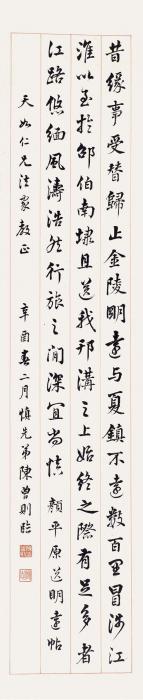 昔緣事受替歸止金陵明遠与夏鎮不遠數百里冒涉江
淮以至於邵伯南埭且送我邗溝之上始終之際有足多者
江路悠緬風濤浩然行旅之間深宜尚慎　顏平原送明遠帖
天如仁兄法家教正　辛酉春二月慎先弟陳曾則臨